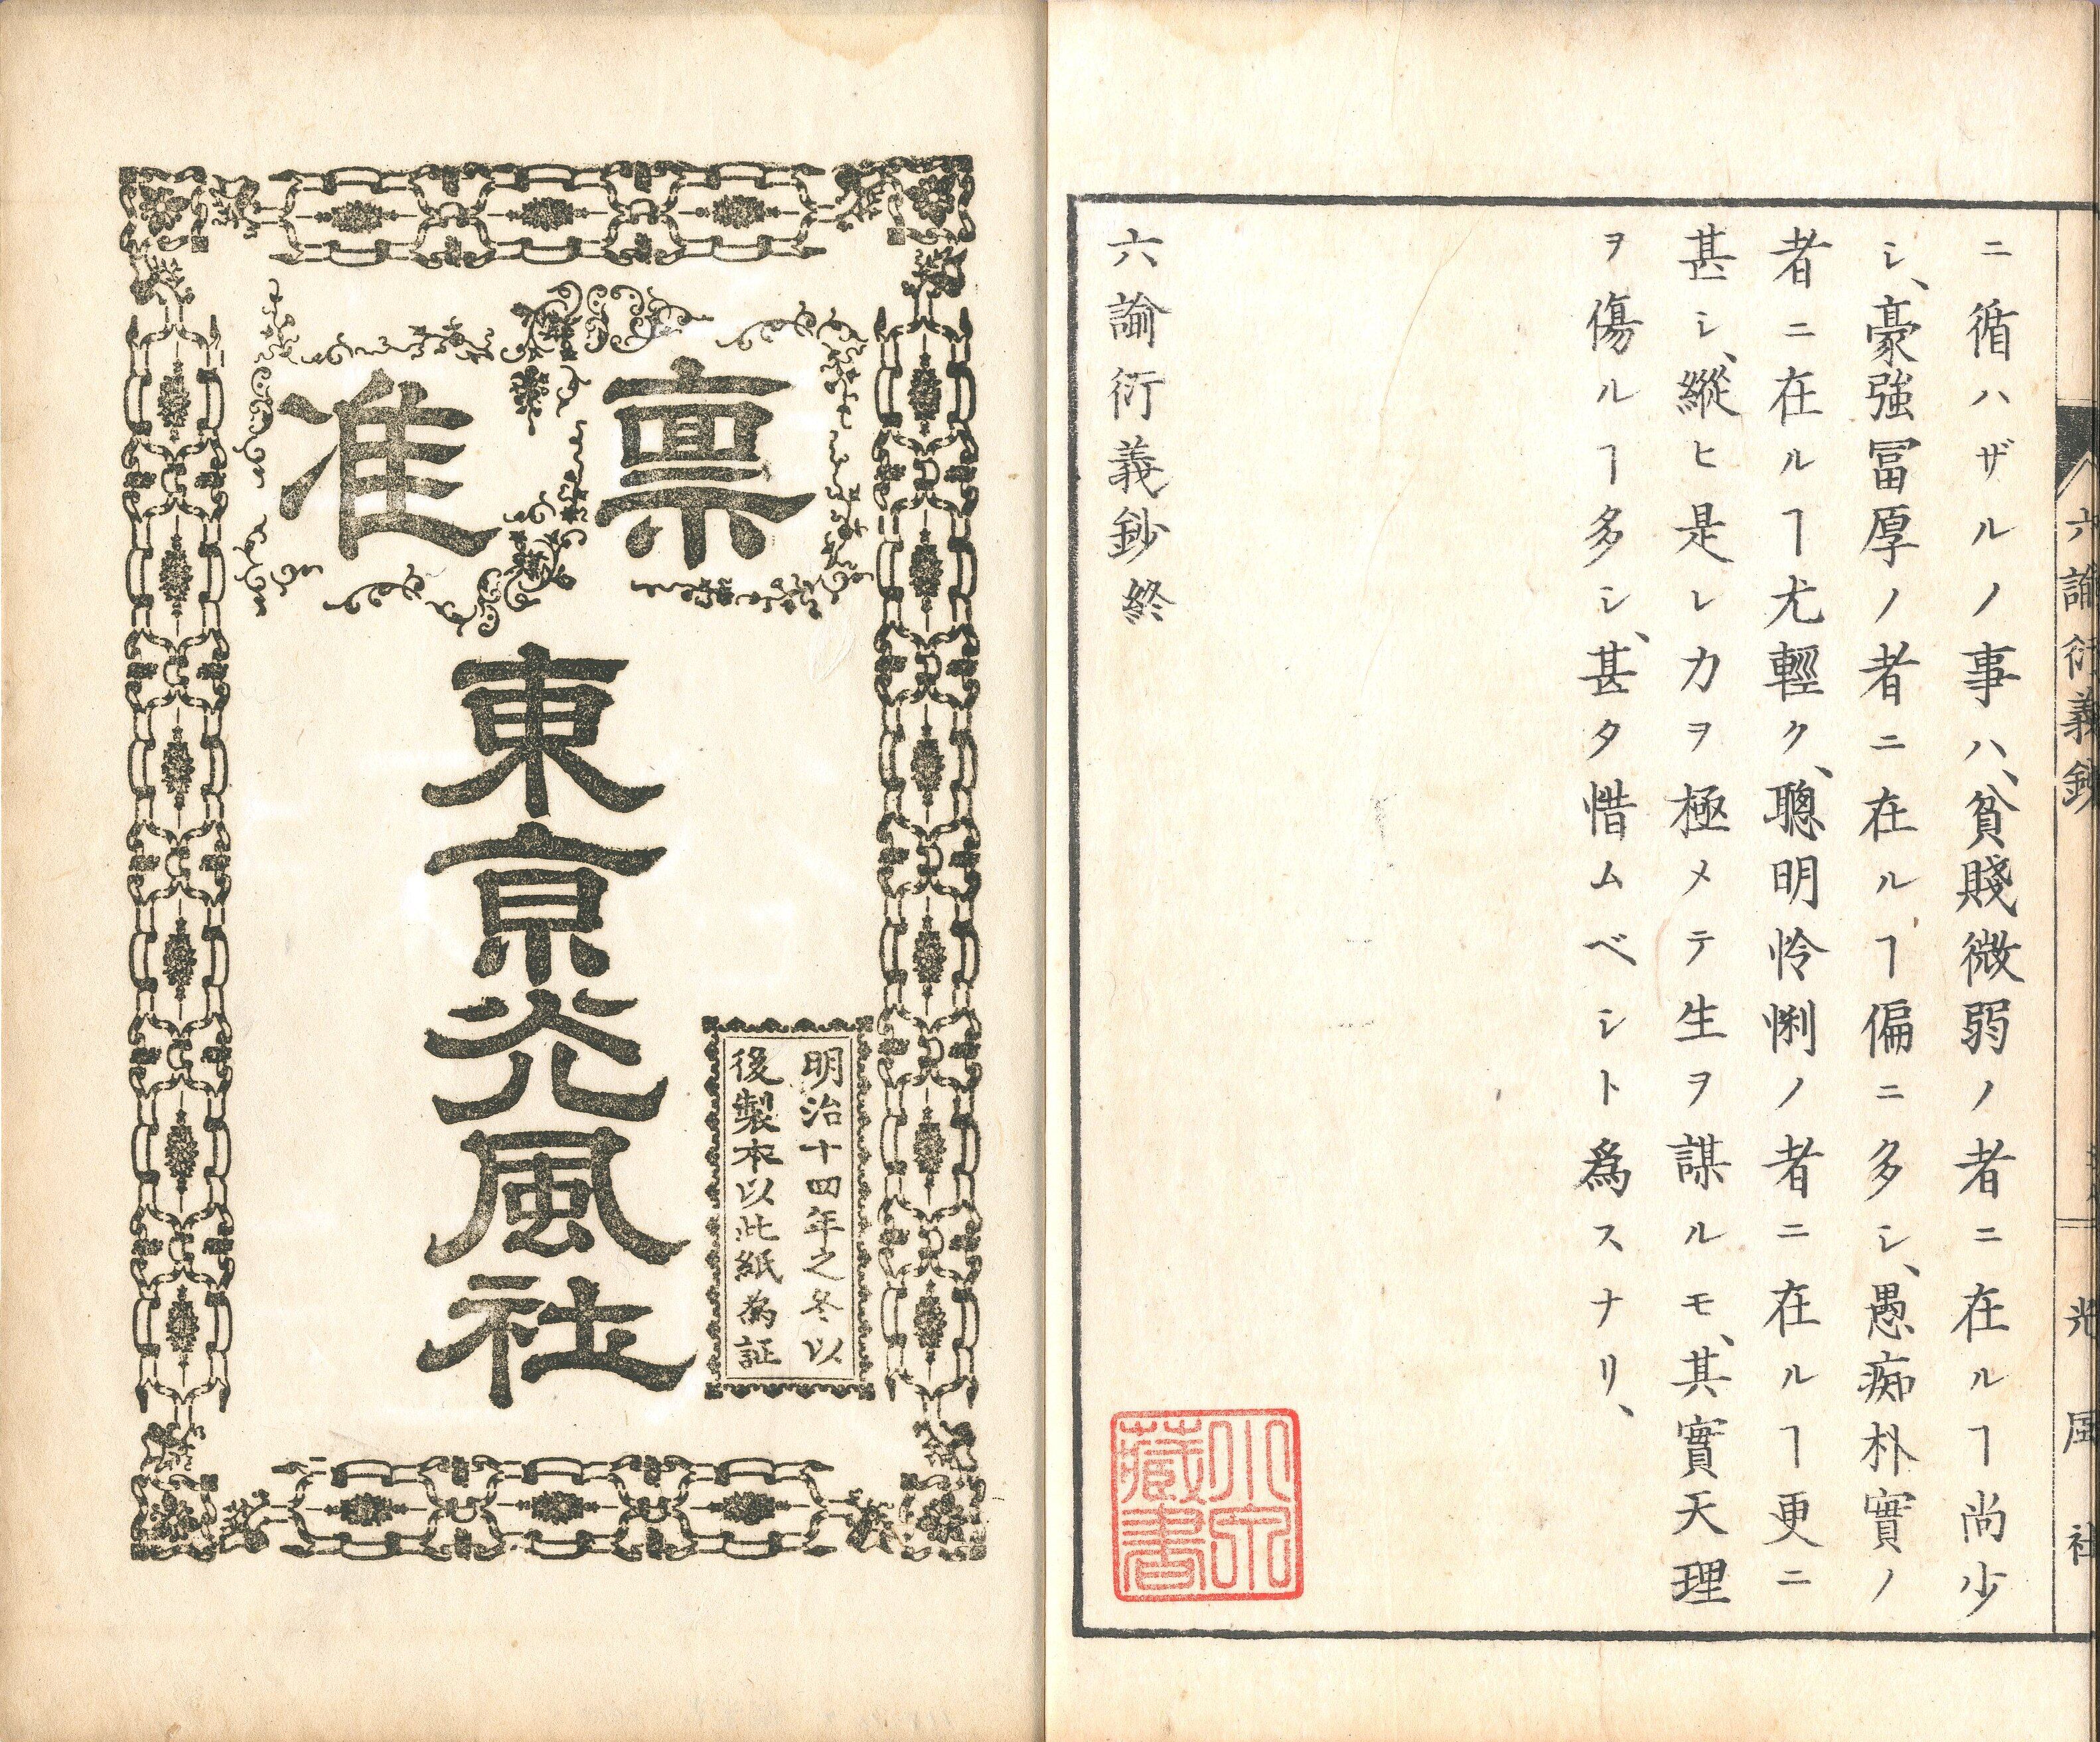 六諭衍義鈔 光風社
ニ循ハザルノ事ハ、貧賤微弱ノ者ニ在ルヿ尚少
シ、豪強冨厚ノ者ニ在ルヿ偏ニ多シ、愚痴朴實ノ
者ニ在ルヿ尤輕ク、聰明怜悧ノ者ニ在ルヿ更ニ
甚シ、縱ヒ是レ力ヲ極メテ生ヲ謀ルモ、其實天理
ヲ傷ルヿ多シ、甚タ惜ムベシト爲スナリ、
六諭衍義鈔終
藏書
稟准
明治十四年之冬以
後製本以此紙為証
東京光風社